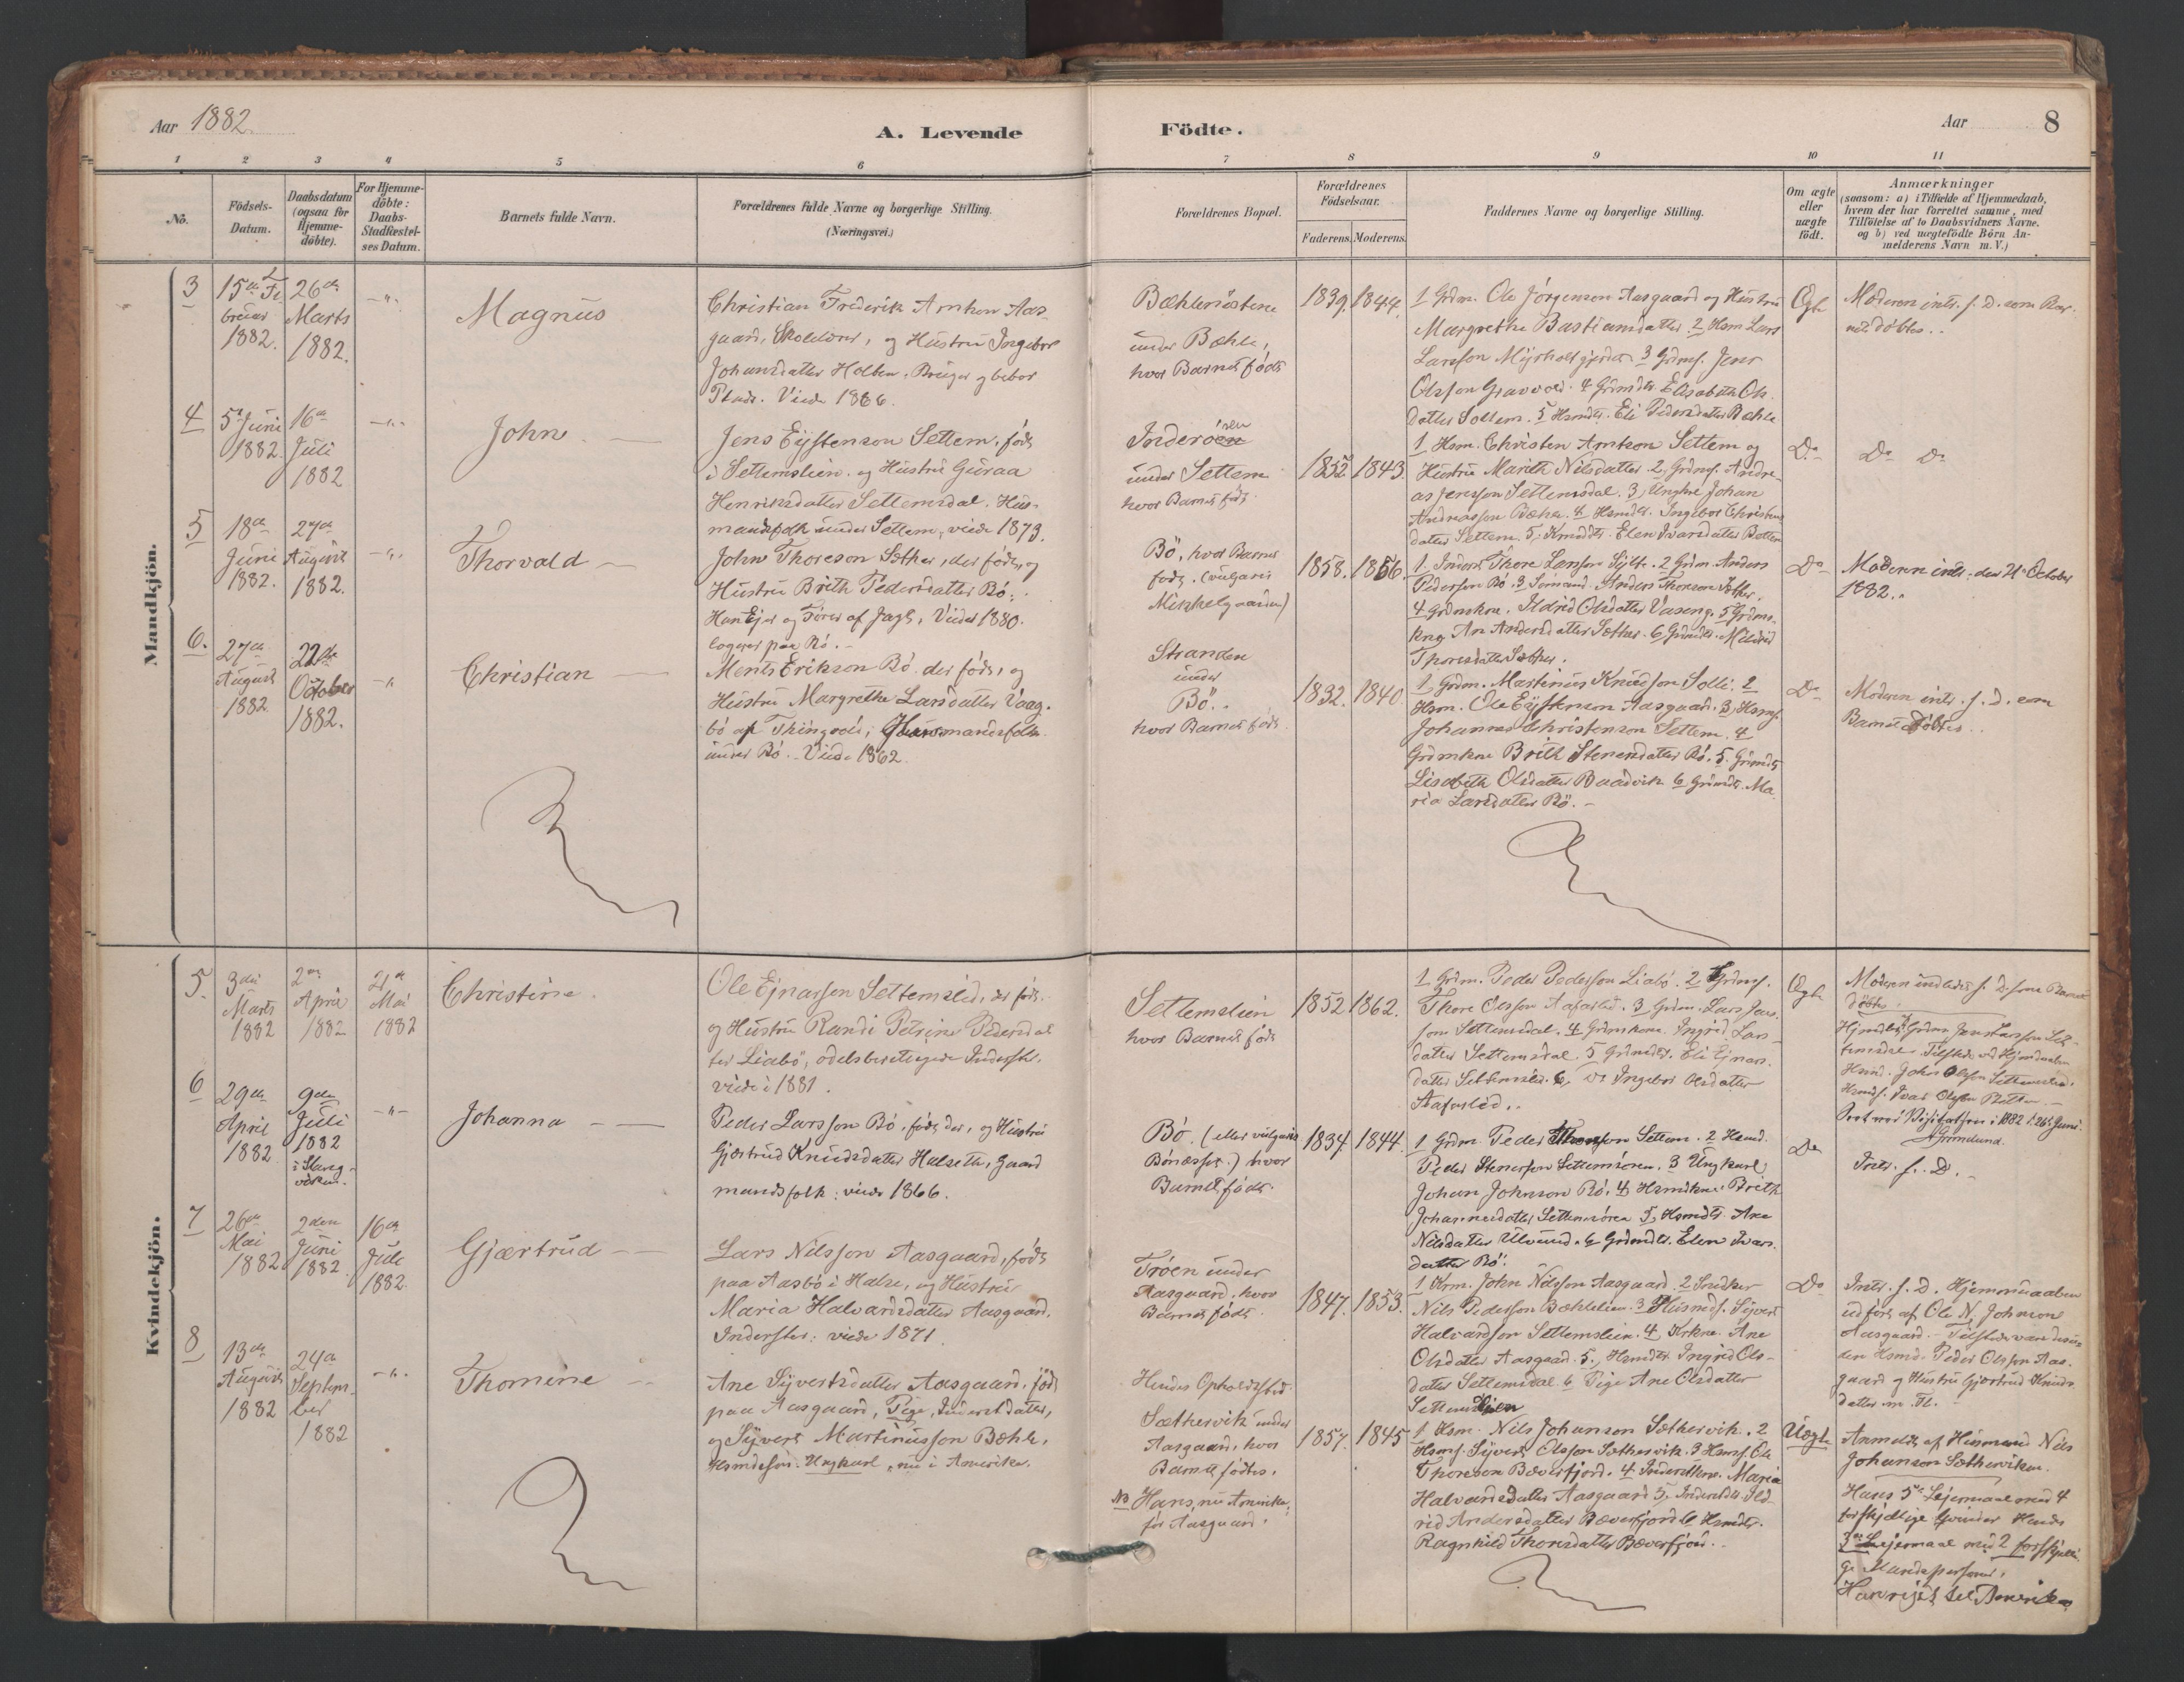 Aar 1882.
A. Levende Födte.
Aar 8
1 2 3 4 5 6 7 8 9 10 11
No.
Födsels-
Datum.
Daabsdatum
(ogsaa for
Hjemme-
döbte).
For Hjemme-
döbte:
Daabs-
Stadfæstel-
ses Datum.
Barnets fulde Navn.
Forældrenes fulde Navne og borgerlige Stilling.
(Næringsvei.)
Forældrenes Bopæl.
Forældrenes
Födselsaar.
Faderens. Moderens.
Faddernes Navne og borgerlige Stilling.
Om ægte
eller
uægte
födt.
Anmærkninger
(saasom: a) i Tilfælde af Hjemmedaab,
hvem der har forrettet samme, med
Tilföielse af to Daabsvidners Navne.
og b) ved uægtefödte Börn An-
melderens Navn m. V.)
Mandkjön.
3
15de Fe
bruar
1882.
26de
Marts
1882.
-"-
Magnus
Christian Frederik Arntson Aas-
gaard, Skolelærer, og Hustru Ingebor
Johansdatter Holben. Bruger og bebor
Plads. Viede 1866.
Bæhlenöstene
under Bæhle,
hvor Barnet födt
1839. 1844.
1 Grdm. Ole Jörgenson Aasgaard og Hustru
Margrethe Bastiansdatter 2 Hsm Lars
Larsson Myrholtgjerdet 3 Grdms. Jens
Olsson Gravvold. 4 Grdmdtr. Elisabeth Ols
datter Solem. 5 Hsmdtr. Eli Pedersdatter Bæhle
Ægte
Moderen intr. s. D. som Bar-
net döbtes..
4
5te Juni
1882.
16de
Juli
1882
-"-
John
Jens Eystenson Settem, födt
i Settemslien. og Hustru Guraa
Henriksdatter Settemsdal. Hus-
mandsfolk under Settem, viede 1873.
Inderöen
under Settem
hvor Barnet födt.
1852 1843.
1 Hsm. Christen Arntson Settem og
Hustru Marith Nilsdatter 2, Grdms. Andre-
as Jensson Settemsdal. 3, Ungkre Johan
Andreasson Bæhle. 4 Hsmdtr. Ingebor Christens
datter Settem. 5, Hsmdtr. Elen Ivarsdatter Botten
Do
Do Do
5
18de
Juni
1882.
27de
August
1882.
-"-
Thorvald
John Thoreson Sæther, der födt, og
Hustru Brith Pedersdatter Bö;
Han Ejer og Förer af Jagt. Viede 1880.
logerer paa Bö. -
Bö, hvor Barnet
födt. (vulgaris
Mikkelgaarden)
1858. 1856
1 Inderst Thore Larsson Sylte. 2 Grdm. Anders
Pedersson Bö 3 Sömand. Anders Thoreson Sæther.
4 Grdmskne. Ildrid Olsdatter Vaseng. 5 Grdms-
kne An Andersdatter Sæther. 6 Grdmdtr. Mildrid
Thoresdatter Sæther.
Do
Moderen intr. den 21de October
1882..
6.
27de
August
1882
22de
October
1882.
-"
Christian
Ments Erikson Bö der födt, og
Hustru Margrethe Larsdatter Vaag-
bö af Thingvold, Husmandsfolk
under Bö. Viede 1862.
Stranden
under
Bö..
hvor Barnet födt
1832. 1840.
1 Grdm. Martinus Knudson Solli. 2
Hsm. Ole Eystenson Aasgaard. 3, Hsms.
Johannes Christenson Settem. 4
Grdmkne Brith Stenersdatter Bö. 5. Grdmdtr
Lisabeth Olsdatter Baadvik 6 Grdmdtr. Ma-
ria Larsdatter Bö. -
Do
Moderen intr. s. D. som
Barnet döbtes..
Kvindekjön.
5.
3die
Marts
1882
2den
April
1882
21de
Mai
1882
Christine.
Ole Ejnarson Settemslid, der födt.
og Hustru Randi Petrine Pedersdat
ter Liabö, odelsberettigede Inderster.
viede i 1881.
Settemslien
hvor Barnet födt
1852 1862.
1 Grdm. Peder Pedersson Liabö. 2 Grdms.
Thore Olsson Aafarlid. 3 Grdm. Lars Jens
son Settemsdal. 4 Grdmkone. Ingrid Lars-
datter Settemsdal. 5 Grdmdtr. Eli Ejnars-
datter Settemslid. 6, do Ingebor Olsdatter
Aafarlid..
Ægte
Moderen indledet s. D. som Barnet
döbtes.
Hjmdöbt af Grdmn Jens Larsson Set-
temsdal. Tilstede ved Hjemdaaben
Hsmd. John Olsson Settemslien.
Hsmds. Ivar Olsson Botten. -
Prot. ved Visitatsen i 1882 d. 26de Juni.
Grimelund.
6
29de
April
1882
9de
Juli
1882
i Stang-
viken.
-"-
Johanna
Peder Larsson Bö, födt der, og Hustru
Gjertrud Knudsdatter Halseth, Gaard
mandsfolk: viede 1866.
Bö. (eller vulgaris
Bönæsset.) hvor
Barnet födt.
1834. 1844.
1 Grdm. Peder Thoreson Settem. 2 Hsmd.
Peder Stenerson Settemsören. 3 Ungkarl
Johan Johnson Bö. 4 Hsmdkne Brith
Johannesdatter Settemsören 5, Hsmdtr. Ane
Nilsdatter Ulvund. 6 Grdmdtr. Elen Ivars-
datter Bö.
Do
Intr. s. D. -
7
26de
Mai
1882
2den
Juni
1882.
16de
Juli
1882.
Gjærtrud
Lars Nilsson Aasgaard, födt
paa Aasbö i Halse, og Hustru
Maria Halvardsdatter Aasgaard.
Inderster: viede 1871.
Tröen under
Aasgaard, hvor
Barnet födt.
1847. 1853.
1 Krm. John Nilsson Aasgaard. 2 Snedker
Nils Pedersson Bæhlelien. 3 Husmds. Sivert
Halvardson Settemslien. 4 Krkne. Ane
Olsdatter Aasgaard. 5., Hsmdtr. Ingrid Ols-
datter Settemsdal. 6 Pige Ane Olsdatter
Settemslien
Do
Intr. s. D. Hjemmedaaben
udfört af Ole N. Johnson
Aasgaard. - Tilstede var desu-
den Hsmd. Peder Olsson Aas-
gaard og Hustru Gjertrud Knuds
datter m. Fl. -
8
13de
August
1882
24de
Septem-
ber
1882
-"-
Thomine
Ane Syvertsdatter Aasgaard, födt
paa Aasgaard, Pige, Inderstdatter,
og Syvert Martinusson Bæhle,
Hsmdssön. Ungkarl, nu i Amerika.
Hendes Opholdssted
Sæthervik under
Aasgaard, hvor
Barnet födtes.
NB Hans, nu Amerika,
för Aasgaard.
1857. 1845
1 Hsm. Nils Johanson Sæthervik. 2
Hsms. Syvert Olsson Sæthervik. 3 Hsms. Ole
Thoreson Bæverfjord. 4 Inderstkne. Maria
Halvardsdatter Aasgaard 5, Inderstdtr. Ild-
rid Andersdatter Bæverfjord 6 Hsmdtr.
Ragnhild Thoresdatter Bæverfjord..
Uægte
Anmeldt af Husmand Nils
Johanson Sætherviken.
Hans 5te Lejermaal med 4
forskjellige Qvinder Hendes
3die Lejermaal med 2 forskjelli-
ge Mandspersoner.
Han rejst til Amerika